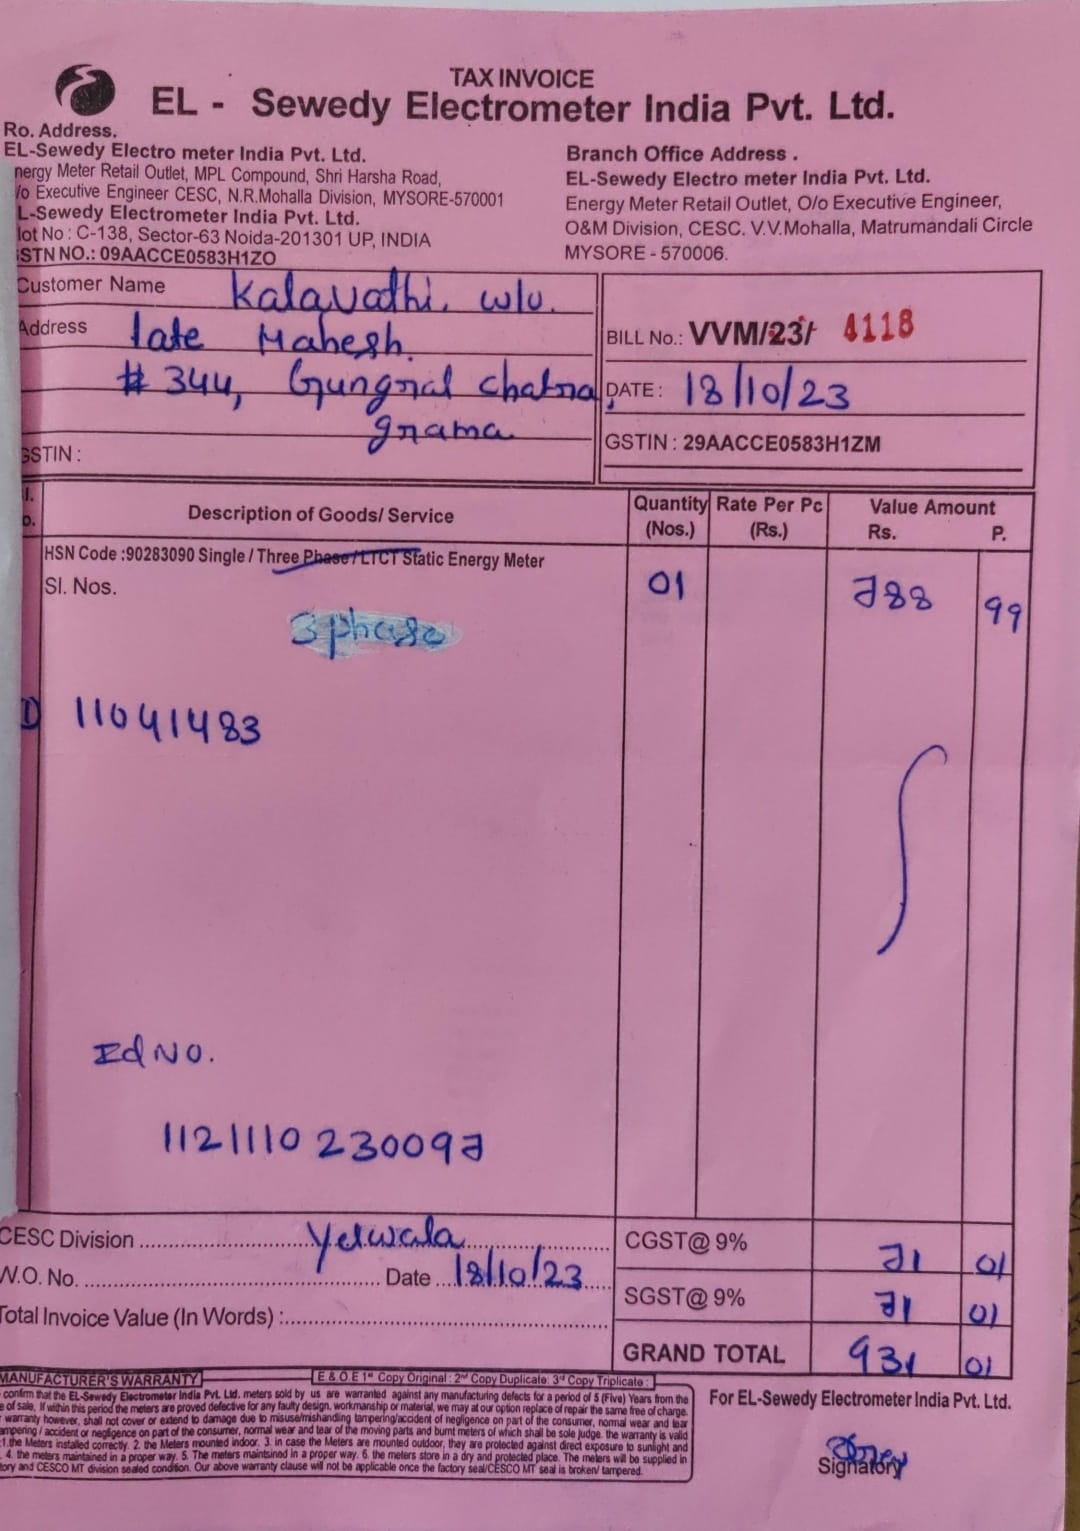 TAX INVOICE
EL - Sewedy Electrometer India Pvt. Ltd.
Ro. Address.
EL-Sewedy Electro meter India Pvt. Ltd.
nergy Meter Retail Outlet, MPL Compound, Shri Harsha Road,
/o Executive Engineer CESC, N.R.Mohalla Division, MYSORE-570001
L-Sewedy Electrometer India Pvt. Ltd.
lot No : C-138, Sector-63 Noida-201301 UP, INDIA
STN NO.: 09AACCE0583H1ZO
Branch Office Address .
EL-Sewedy Electro meter India Pvt. Ltd.
Energy Meter Retail Outlet, O/o Executive Engineer,
O&M Division, CESC. V.V.Mohalla, Matrumandali Circle
MYSORE - 570006.
Customer Name Kalavathi. w/o.
Address late Mahesh.
# 344, Gungral Chatra,
grama
GSTIN :
BILL No.: VVM/23/ 4118
DATE : 18/10/23
GSTIN : 29AACCE0583H1ZM
l. Description of Goods/ Service Quantity Rate Per Pc Value Amount
o. (Nos.) (Rs.) Rs. P.
HSN Code :90283090 Single / Three Phase / LTCT Static Energy Meter
Sl. Nos. 01 788 99
3 phase
1) 11041483
Id No.
1121110230097
CESC Division Yelwala CGST@ 9% 71 01
W.O. No. Date 18/10/23 SGST@ 9% 71 01
Total Invoice Value (In Words) : GRAND TOTAL 931 01
MANUFACTURER'S WARRANTY E & O E 1st Copy Original : 2nd Copy Duplicate: 3rd Copy Triplicate :
confirm that the EL-Sewedy Electrometer India Pvt. Ltd. meters sold by us are warranted against any manufacturing defects for a period of 5 (Five) Years from the
e of sale, If within this period the meters are proved defective for any faulty design, workmanship or material, we may at our option replace of repair the same free of charge.
warranty however, shall not cover or extend to damage due to misuse/mishanding tampering/accident of negligence on part of the consumer, normal wear and tear
ampering / accident or negligence on part of the consumer, normal wear and tear of the moving parts and burnt meters of which shall be sole judge. the warranty is valid
1.the Meters installed correctly. 2. the Meters mounted indoor. 3. in case the Meters are mounted outdoor, they are protected against direct exposure to sunlight and
. 4. the meters maintained in a proper way. 5. The meters maintained in a proper way. 6. the meters store in a dry and protected place. The meters will be supplied in
tory and CESCO MT division sealed condition. Our above warranty clause will not be applicable once the factory seal/CESCO MT seal is broken/ tampered.
For EL-Sewedy Electrometer India Pvt. Ltd.
Signatory